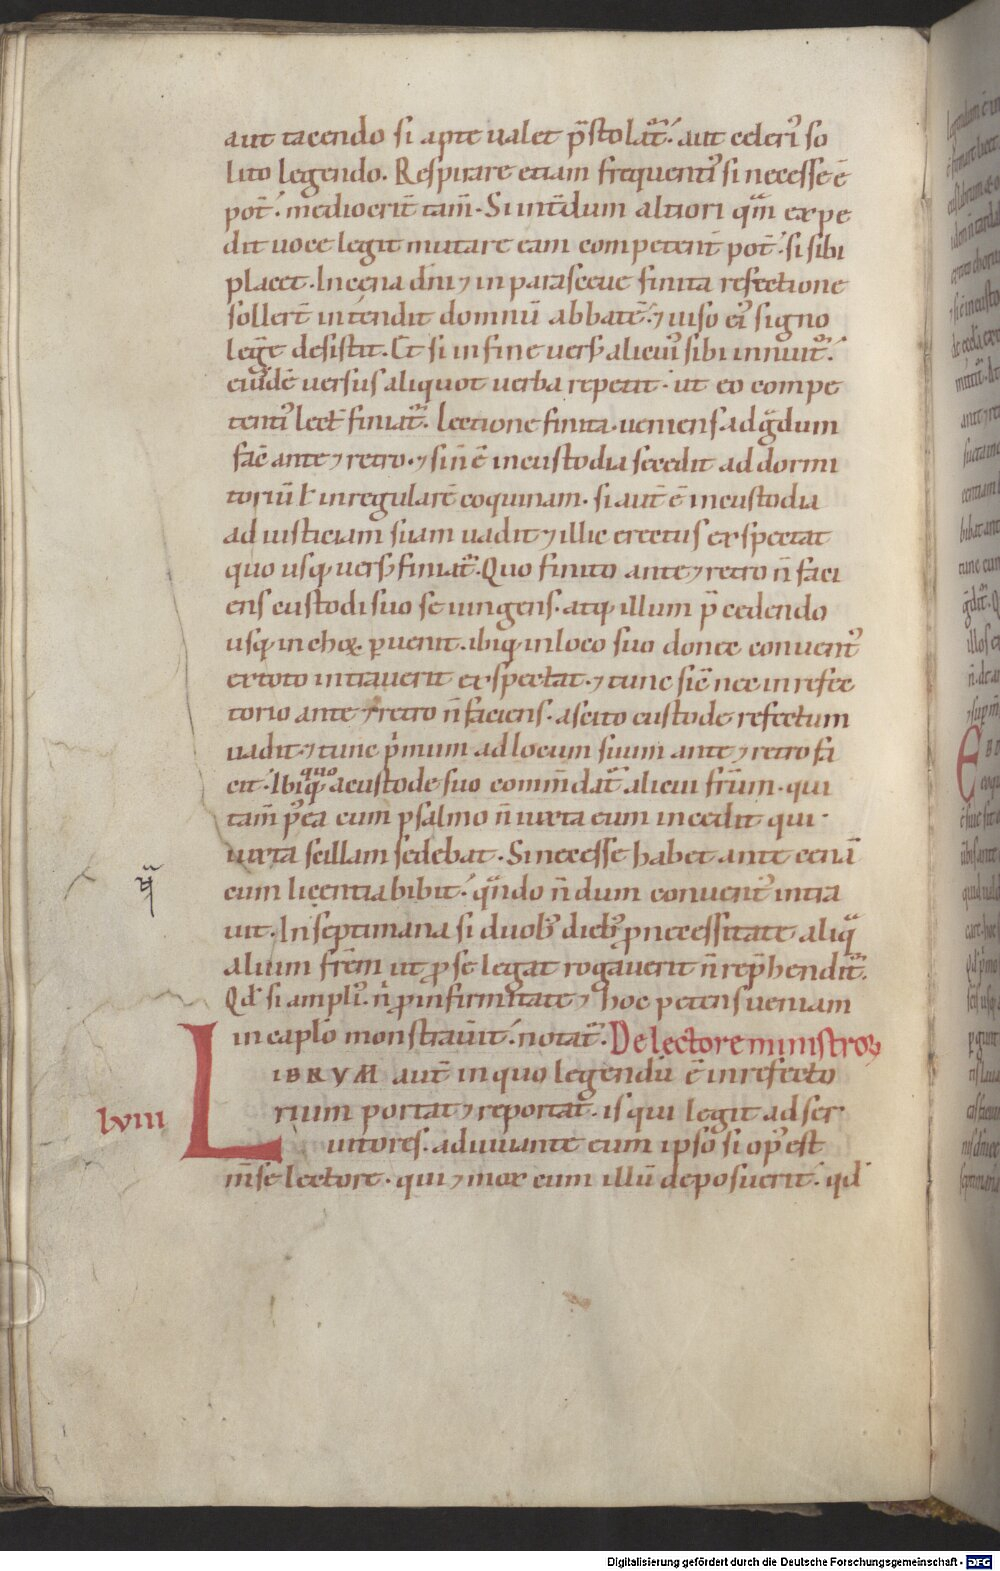 aut tacendo si apte ualet p̄stolat᷑. aut celeri᷒ so
lito legendo. Respirare etiam frequenti᷒ si necesse ē
pot̄. mediocrit̄ tam̄. Si int̄dum altiori quā expe
dit uoce legit mutare eam competent̄ pot̄. si sibi
placet. In cena dn̄i ⁊ in parasceue finita refectione
sollert̄ intendit domnū abbatē. ⁊ uiso ei᷒ signo
legē desistit. Et si in fine uers᷒ alicui᷒ sibi innuit᷑.
eiꝰdē uersus aliquot uerba repetit. ut eo compe
tenti᷒ lect̄ finiat᷑. Lectione finita. ueniens ad gͣdum
fac̄ ante ⁊ retro. ⁊ si n̄ ē in custodia secedit ad dormi
toriū ł in regularē coquinam. si aut̄ ē in custodia
ad iusticiam suam uadit ⁊ illic erectus exspectat
quo usq; uers᷒ finiat᷑. Quo finito ante ⁊ retro n̄ faci
ens custodi suo se iungens. atq; illum p̄cedendo
usq; in choꝝ. ꝑuenit. ibiq; in loco suo donec conuent᷒
ex toto intrauerit exspectat. ⁊ tunc sic̄ nec in refec
torio ante ⁊ retro n̄ faciens. ascito custode refectum
uadit. ⁊ tunc p̄mum ad locum suum ante ⁊ retro fa
cit. Ibiq; quo a custode suo com̄ndat᷑ alicui fr̄um. qui
tam̄ p᷒ea cum psalmo n̄ iuxta eum incedit qui
iuxta scillam sedebat. Si necesse habet ante cenā
cum licentia bibit. quͣndo n̄dum conuent᷒ intra
uit. In septimana si duob᷒ dieb᷒ ꝓ necessitate aliqͣ
alium frēm ut ꝓ se legat rogauerit n̄ rep̄hendit᷑.
Qđ si ampli᷒. n̄ ꝓ infirmitate ⁊ hoc petens ueniam
in caplo monstrauit̄. notat᷑. De lectore ministroꝝ
lviii
LIBRVM aut̄ in quo legendū ē in refecto
rium portat ⁊ reportat. is qui legit ad ser
uitores. adiuuante eum ipso si op᷒ est
m̄se lectore. qui ⁊ mox cum illū deposuerit. qđ